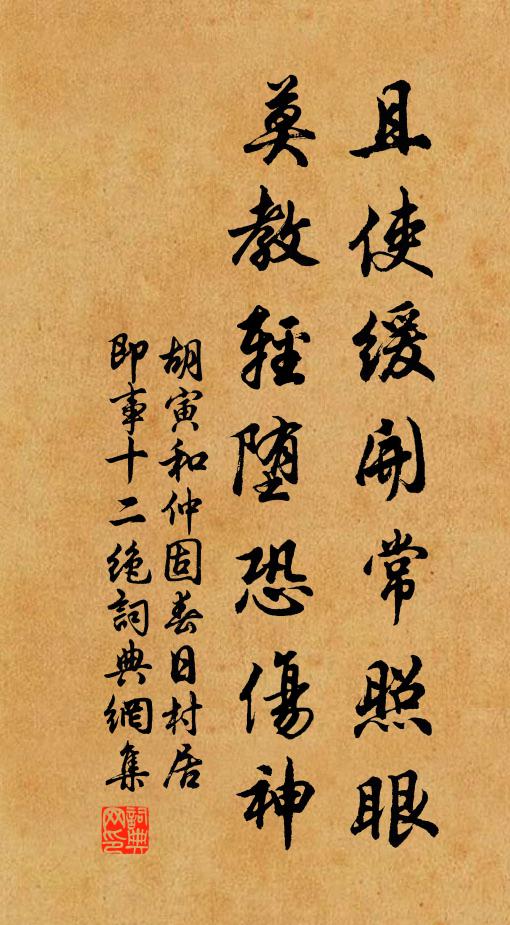 且使緩開常照眼
莫教輕堕恐傷神
胡寅和仲固春日村居
即事十二絶詞典網集
詞典
网印